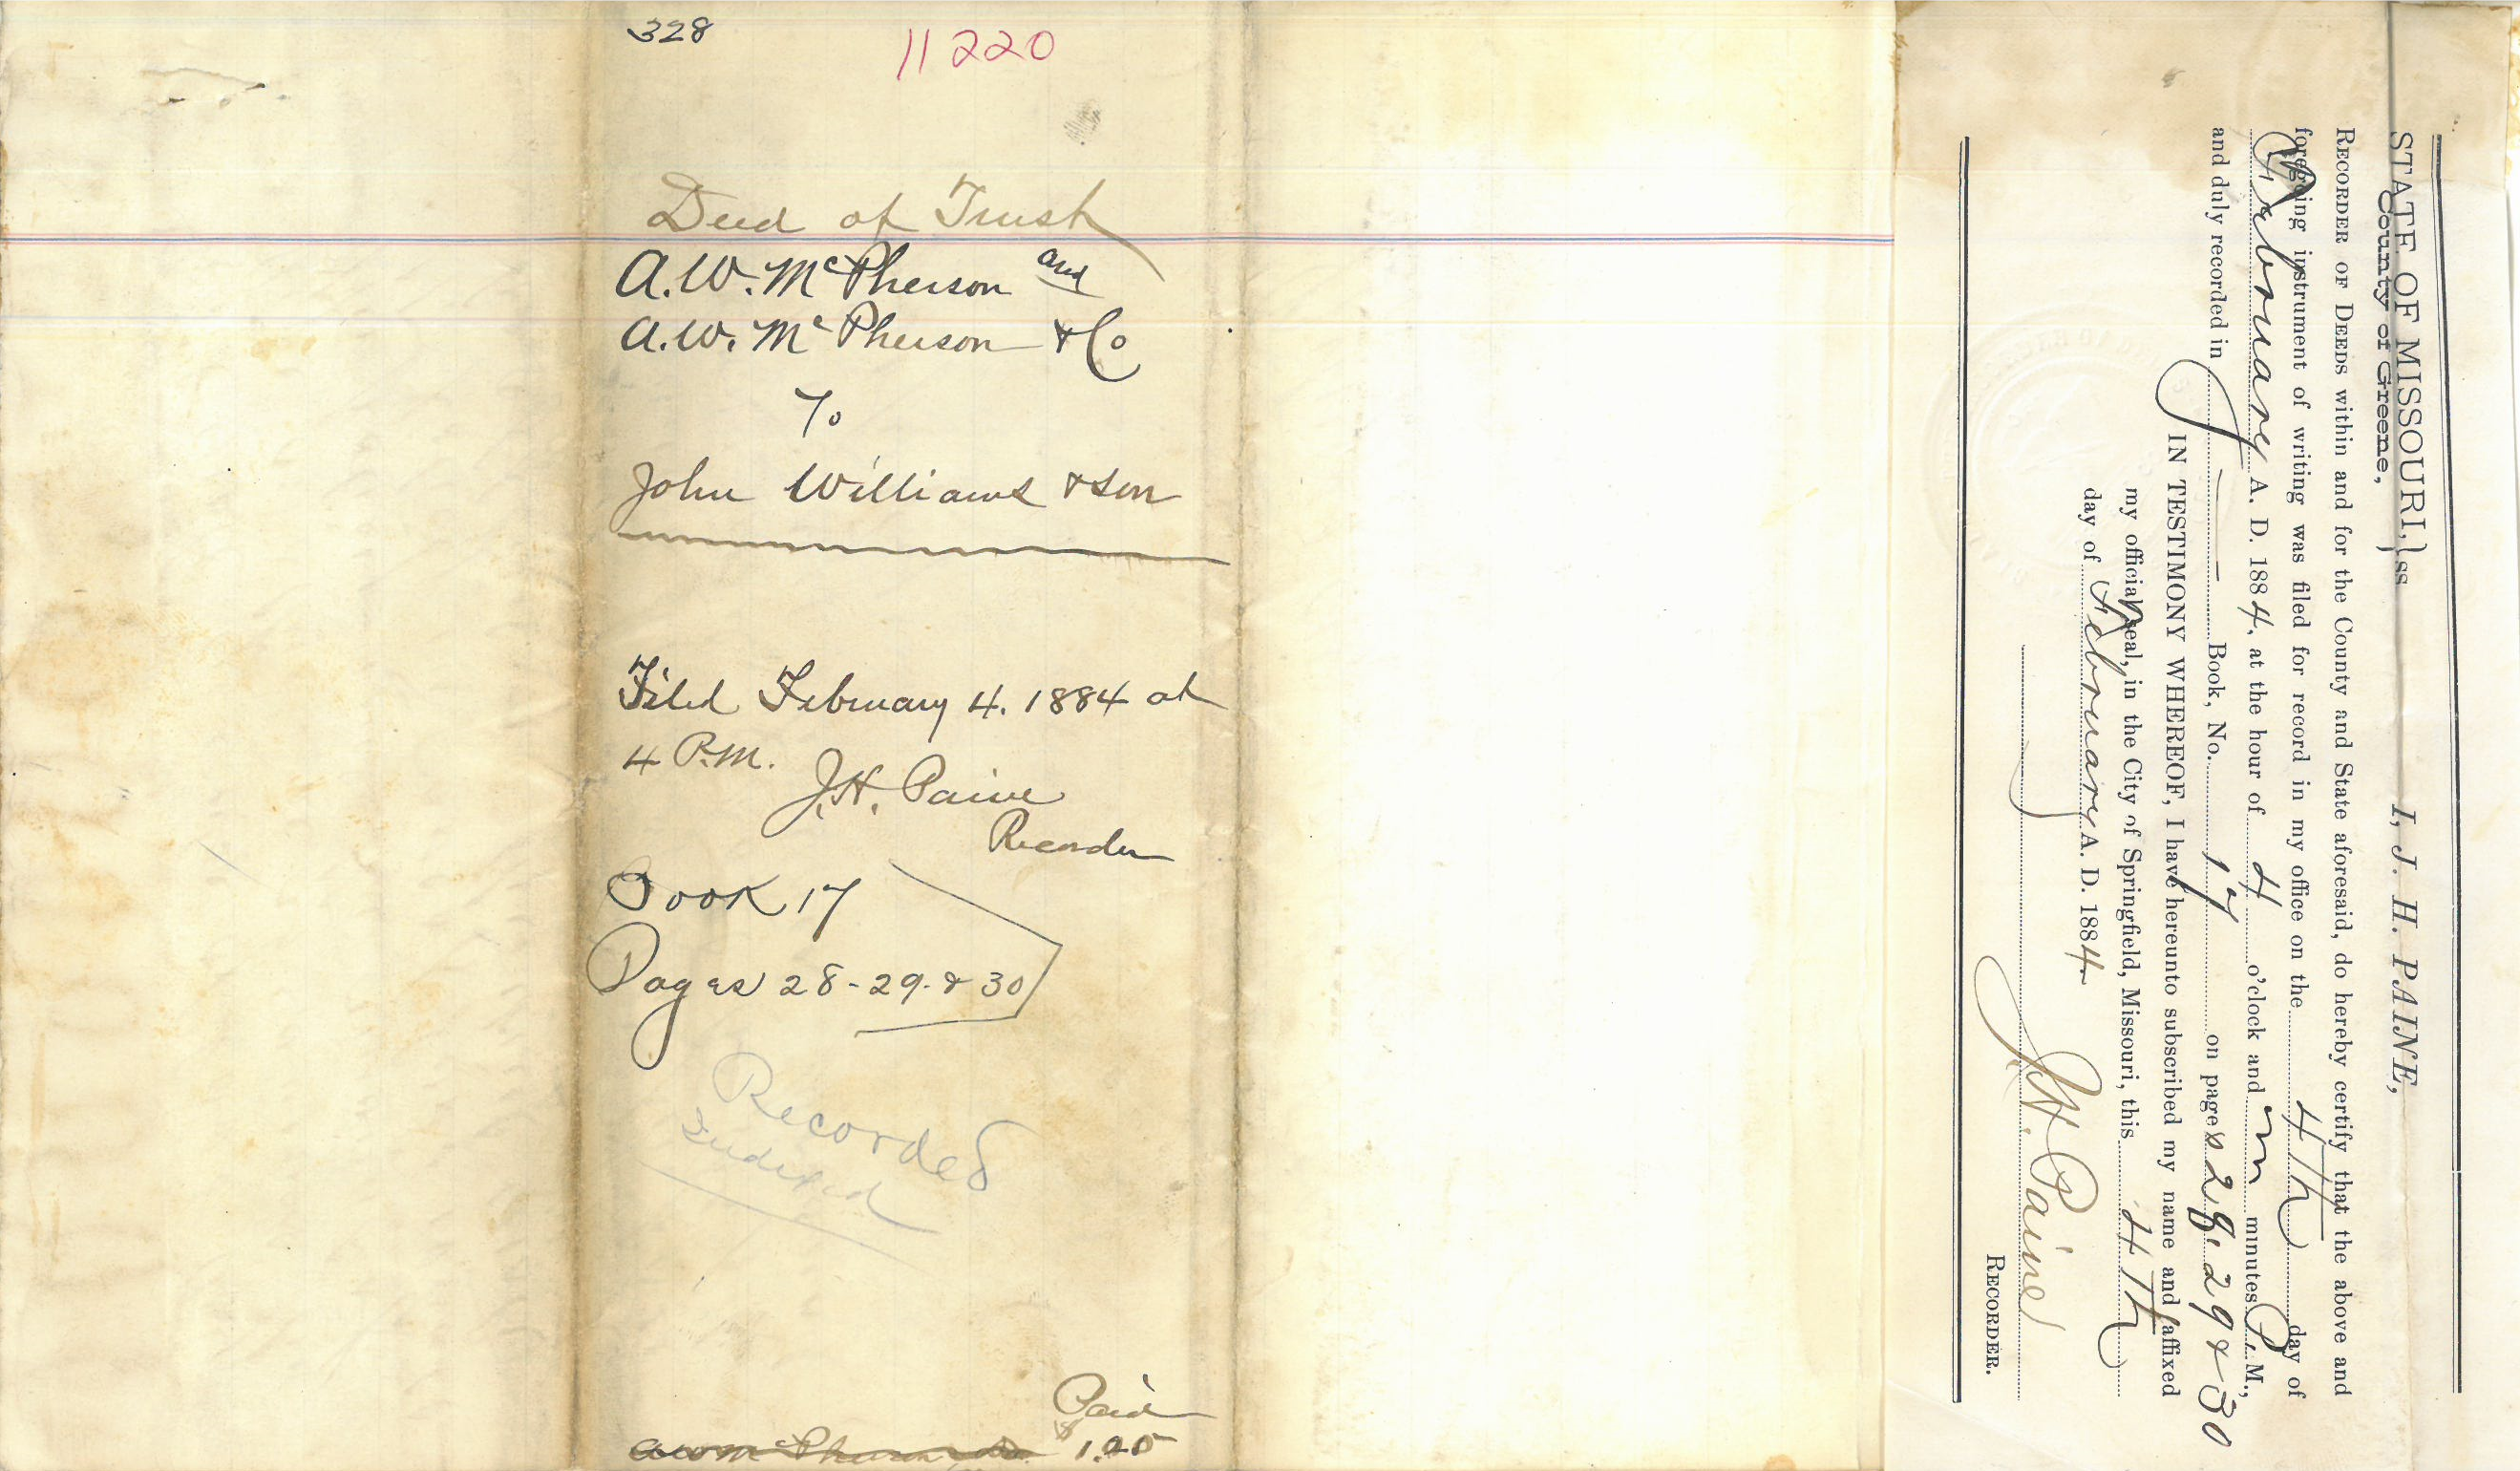 328
11220
Deed of Trust
A.W. McPherson and
A.W. McPherson & Co
To
John Williams & Son
Filed February 4. 1884 at
4 P.M.
J.H. Paine
Recorder
Book 17
Pages 28-29. & 30
Recorded
Indexed
Paid
$1.25
STATE OF MISSOURI, } ss
County of Greene,
I, J. H. PAINE,
RECORDER OF DEEDS within and for the County and State aforesaid, do hereby certify that the above and
foregoing instrument of writing was filed for record in my office on the 4th day of
February A. D. 1884, at the hour of 4 o'clock and minutes P. M.,
and duly recorded in Book, No. 17 on pages 28. 29 & 30
IN TESTIMONY WHEREOF, I have hereunto subscribed my name and affixed
my official seal, in the City of Springfield, Missouri, this 4th
day of February A. D. 1884
J.H. Paine
RECORDER.